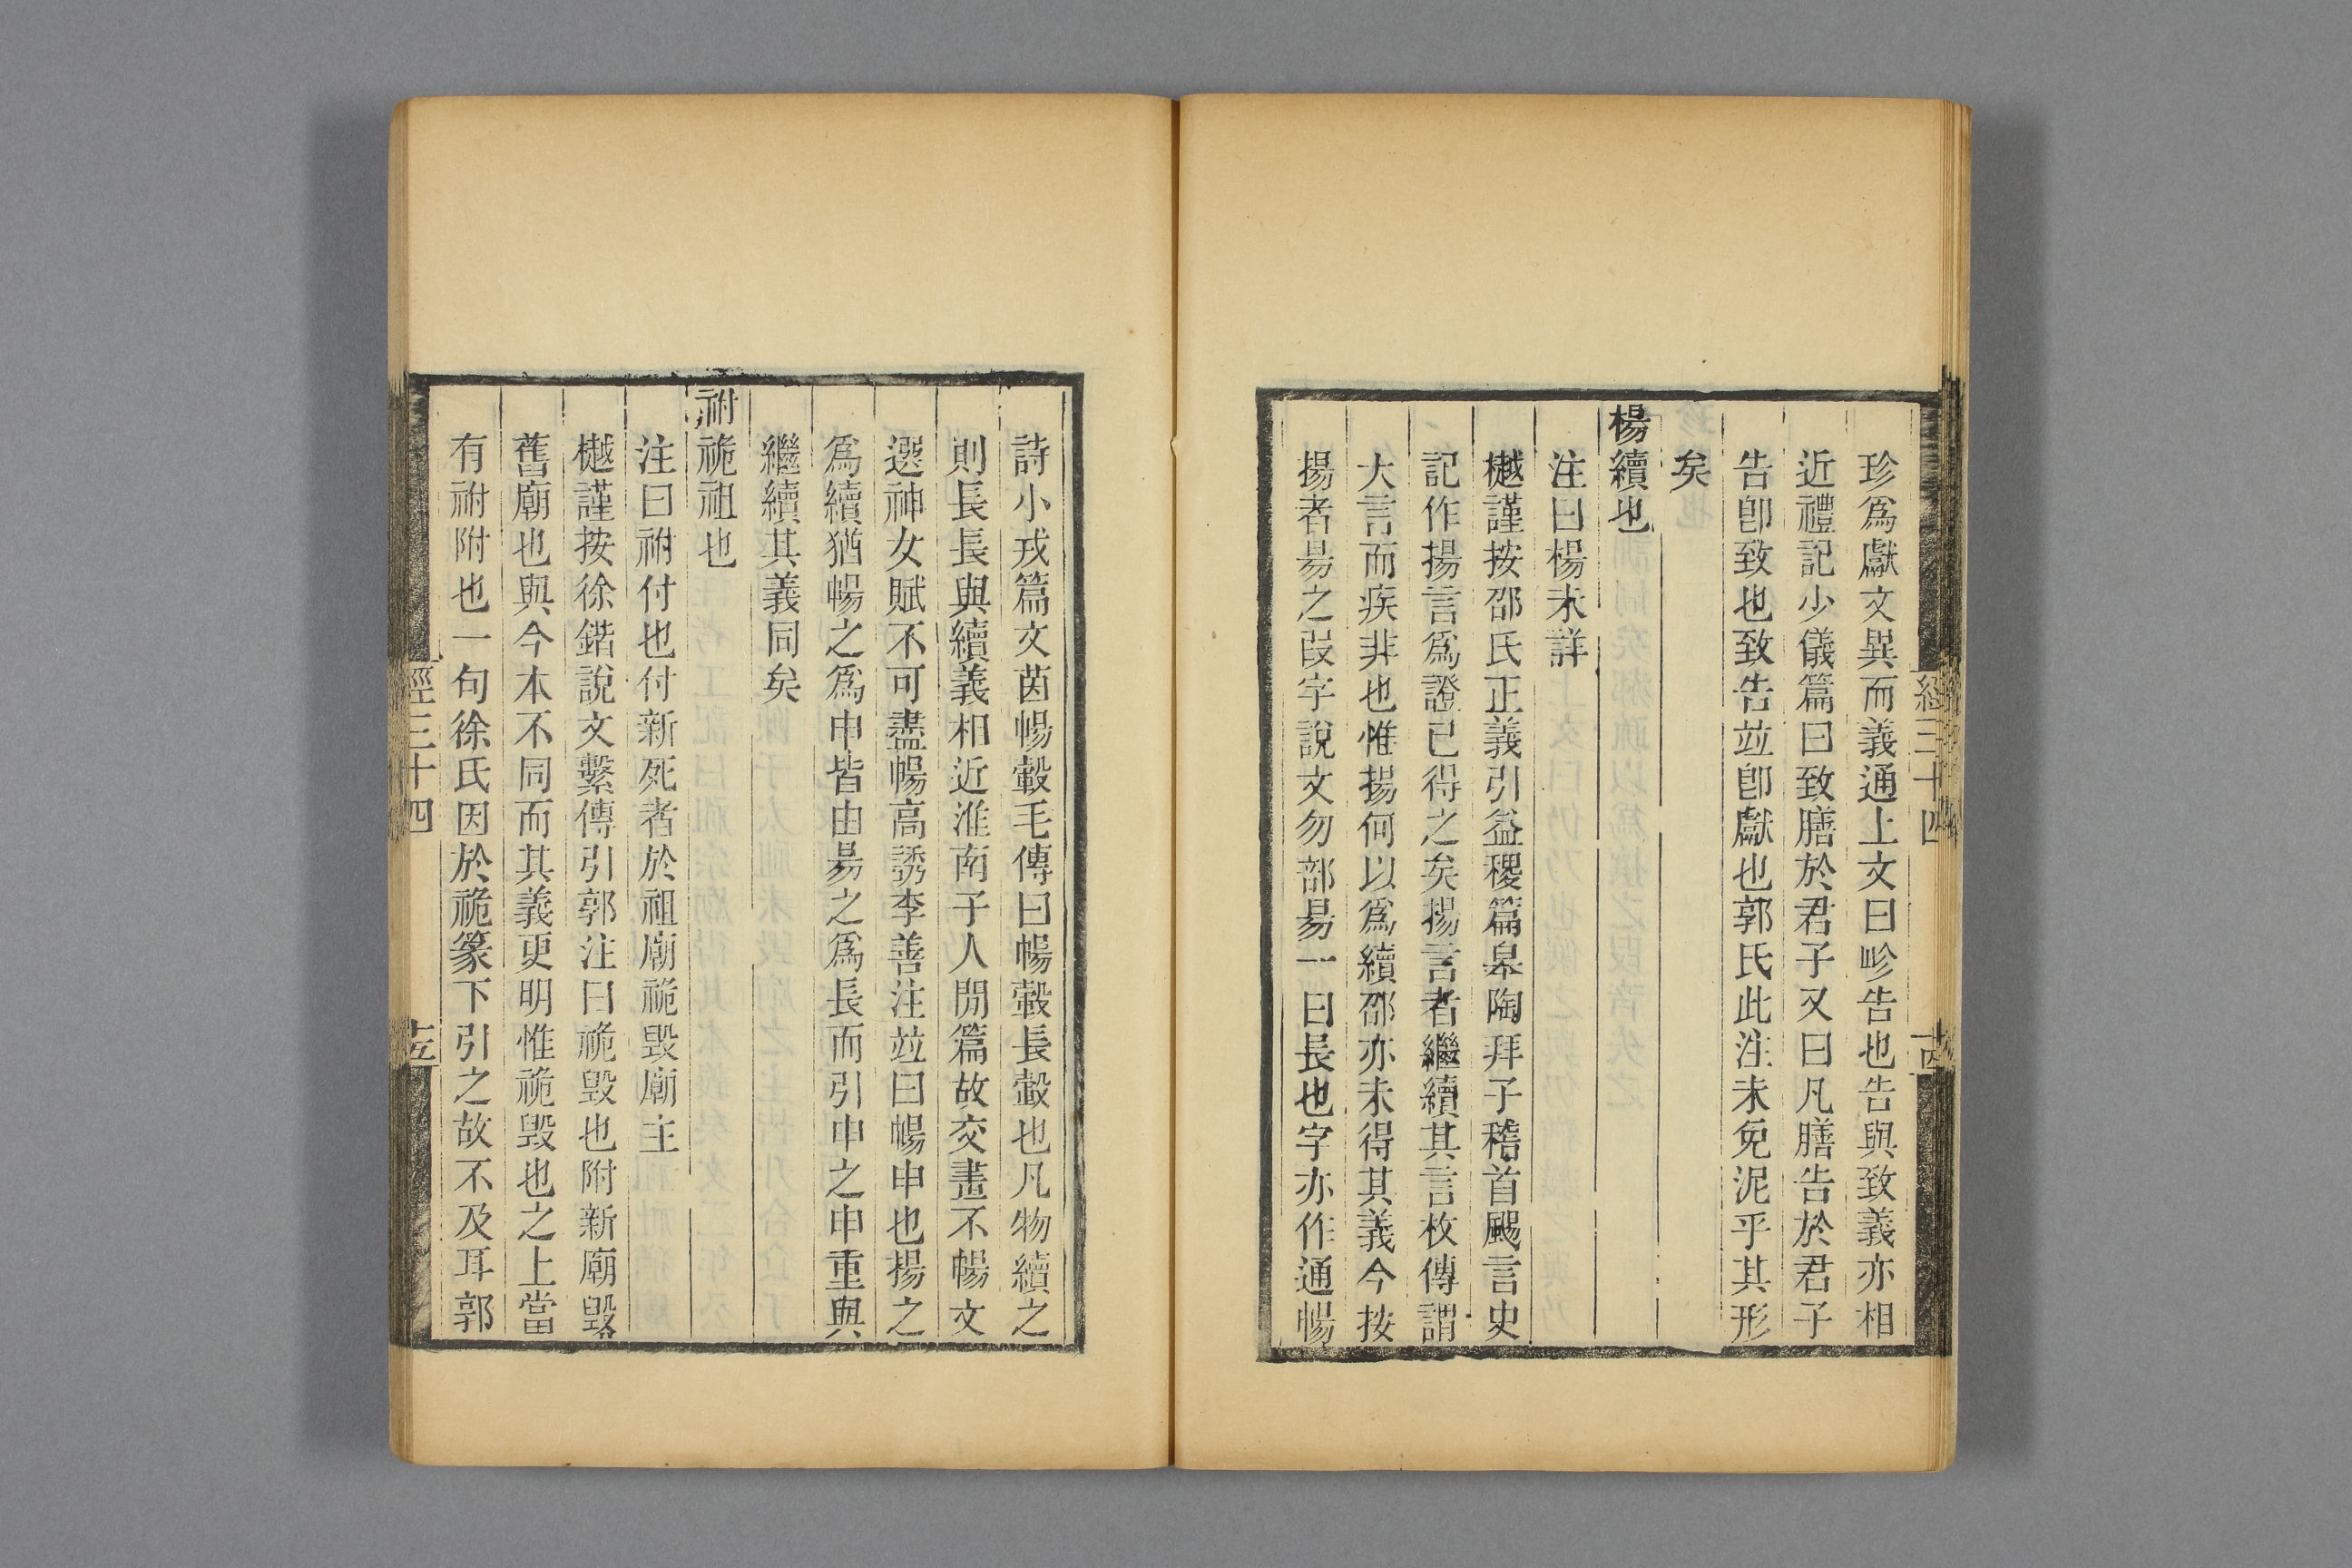 珍爲獻文異而義通上文曰畛告也告與致義亦相
近禮記少儀篇曰致膳於君子又曰凡膳告於君子
告卽致也致告竝卽獻也郭氏此注未免泥乎其形
矣
楊續也
注曰楊未詳
樾謹按邵氏正義引益稷篇皋陶拜手稽首颺言史
記作揚言爲證已得之矣揚言者繼續其言枚傳謂
大言而疾非也惟揚何以爲續邵亦未得其義今按
揚者昜之叚字說文勿部昜一曰長也字亦作通暢
詩小戎篇文茵暢轂毛傳曰暢轂長轂也凡物續之
則長長與續義相近淮南子人閒篇故交畫不暢文
選神女賦不可盡暢高誘李善注竝曰暢申也揚之
爲續猶暢之爲申皆由昜之爲長而引申之申重與
繼續其義同矣
祔祪祖也
注曰祔付也付新死者於祖廟祪毀廟主
樾謹按徐鍇說文繫傳引郭注曰祪毀也附新廟毀
舊廟也與今本不同而其義更明惟祪毀也之上當
有祔附也一句徐氏因於祪篆下引之故不及耳郭
經三十四
十四
經三十四
十五